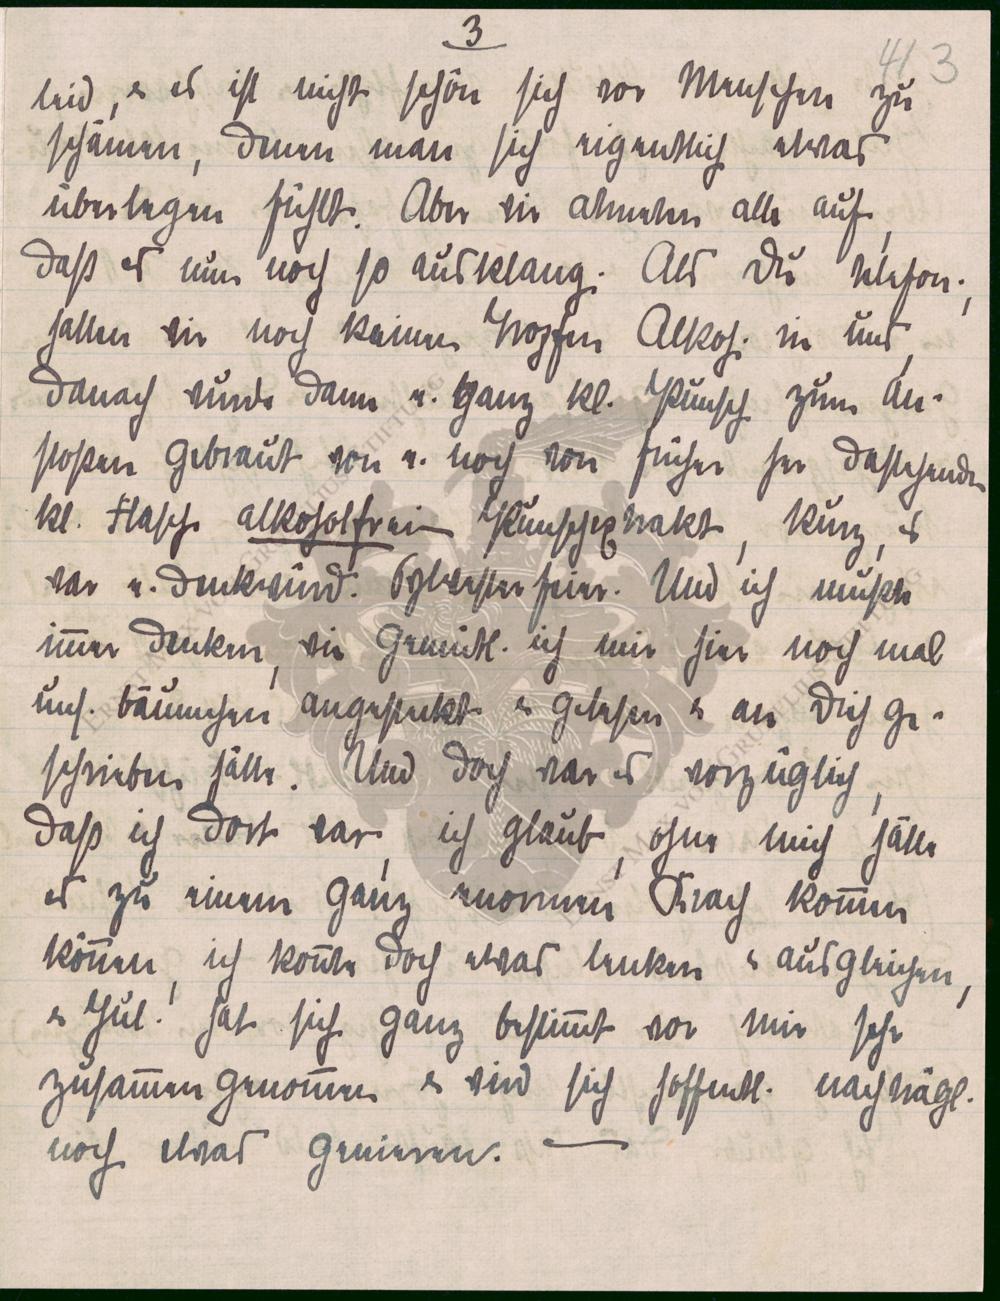 3
41 3
leid, & es ist nicht schön sich vor Menschen zu
schämen, denen man sich eigentlich etwas
überlegen fühlt. Aber wir atmeten alle auf,
daß es nun noch so ausklang. Als Du telefon.,
hatten wir noch keinen Tropfen Alkoh. in uns,
danach wurde dann e. ganz kl. Punsch zum An-
stoßen gebraut von e. noch von früher her dastehenden
kl. Flasche alkoholfreien Punschextrakt, kurz, es
war e. denkwürd. Sylvesterfeier. Und ich mußte
im̅er denken, wie gemütl. ich mir hier noch mal
uns. Bäumchen angesteckt & gelesen & an Dich ge-
schrieben hätte. Und doch war es vorzüglich,
daß ich dort war, ich glaube, ohne mich hätte
es zu einem ganz enormen Krach kom̅en
kön̅en, ich kon̅te doch etwas lenken & ausgleichen,
& Jul. hat sich ganz bestim̅t vor mir sehr
zusam̅engenom̅en & wird sich hoffentl. nachträgl.
noch etwas genieren. —